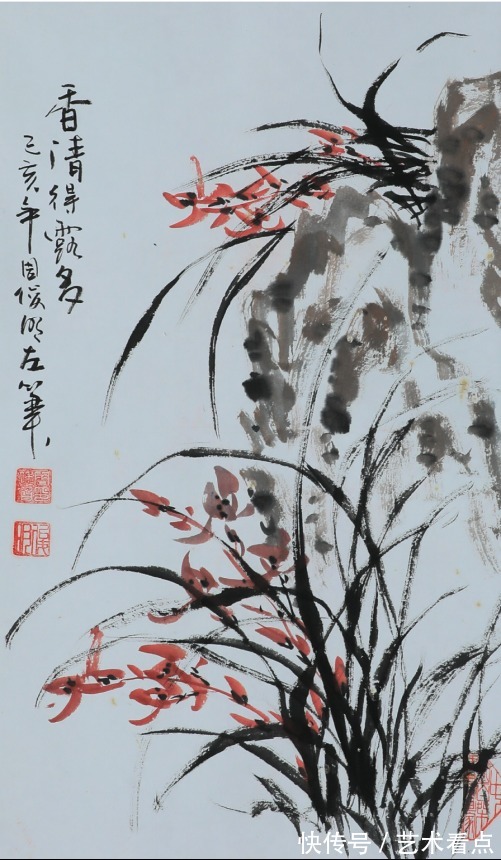 香清得露多
己亥年周俊明左筆
快传号 / 艺术看点